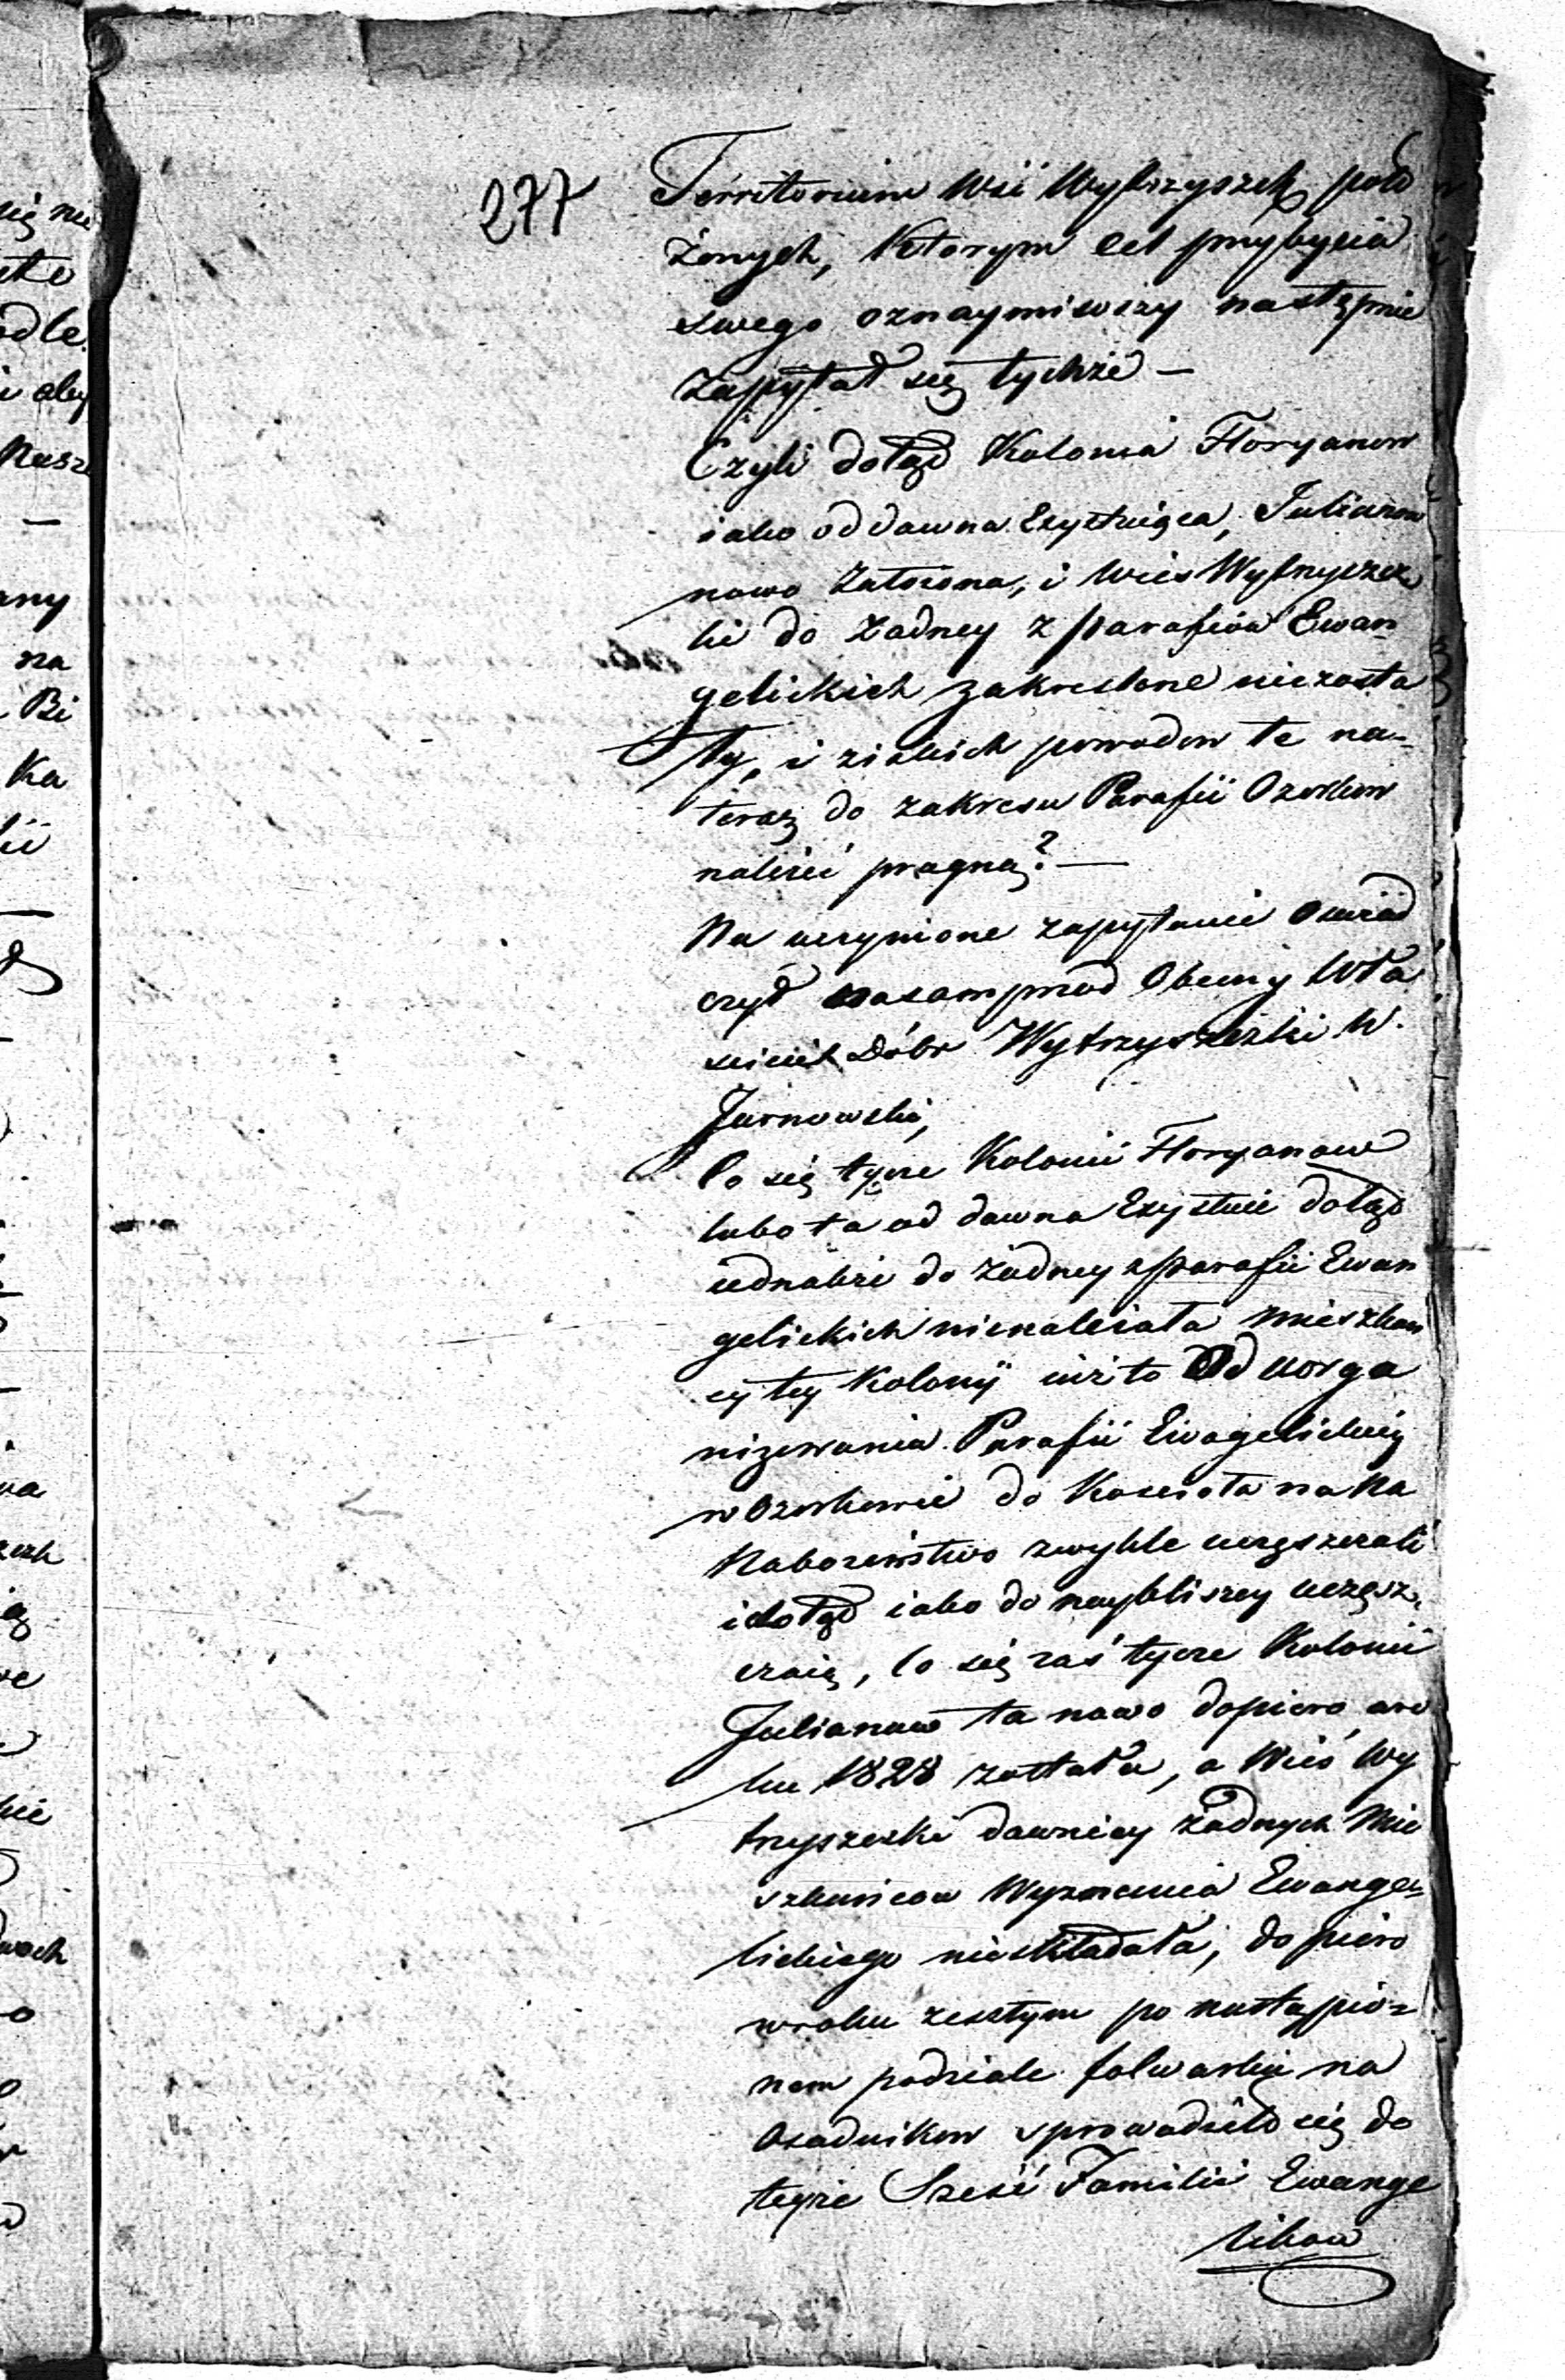 277
Territorium Wsi Wytrzyszek poło
żonych, którym cel przybycia
swego oznaymiwszy następnie
zapytał się tychże —
Czyli dotąd Kolonia Floryanow
iako oddawna Exystuiąca, Julianow
nowo założona, i Wieś Wytrzyszcz
ki do żadney z parafiów Ewan
gelickich zakreslone niezosta
ły, i ziakich powodow te na-
teraz do zakresu Parafii Ozorkow
należeć pragną? —
Na uczynione zapytanie Oswiad
czył nasamprzod Obecny Wła
sciciel Dóbr Wytrzyszczki W.
Jarnowski,
Co się tycze Kolonii Floryanow
lubo ta od dawna Exystuie dotąd
iednakże do żadney zparafii Ewan
gelickich nienależała mieszkan
cy tey Kolonii iuż to Od uorga
nizowania Parafii Ewagelickiey
w Ozorkowie do Kosciola na Na
Nabożeństwo zwykle uczęszczali
idotąd iako do naybliszey uczęsz.
czaią, Co się zaś tycze Kolonii
Julianow ta nowo dopiero wro
ku 1828 została, a Wieś Wy
trzyszczki dawniey żadnych Mie
szkańcow Wyznania Ewange-
lickiego nieskładała, dopiero
wroku zeszłym po nastąpio-
nem podziale folwarku na
Osadnikow sprowadziło się do
teyże Sześć Familii Ewange
likow